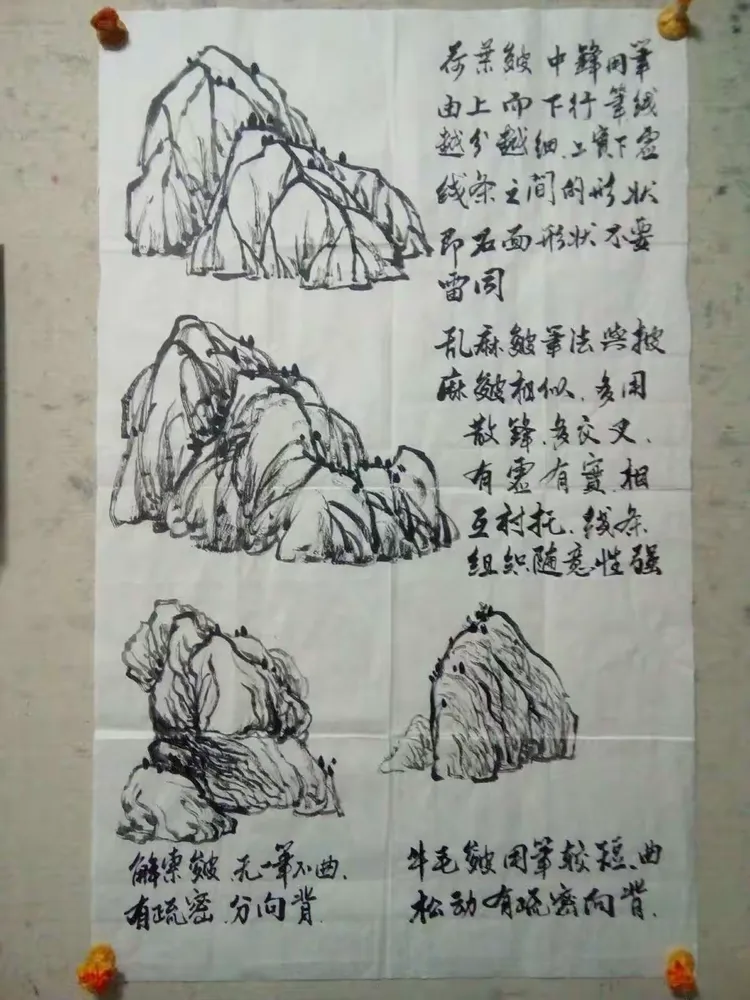 荷葉皴 中鋒用筆
由上而下行筆线
越分越细.上實下虚
线条之间的形状
即石面形状不要
雷同
乱麻皴筆法與披
麻皴相似.多用
散鋒.多交叉.
有虚有實.相
互衬托.线条
组织随意性强
解索皴.无一筆不曲.
有疏密.分向背.
牛毛皴用筆較短.曲
松动有疏密向背.